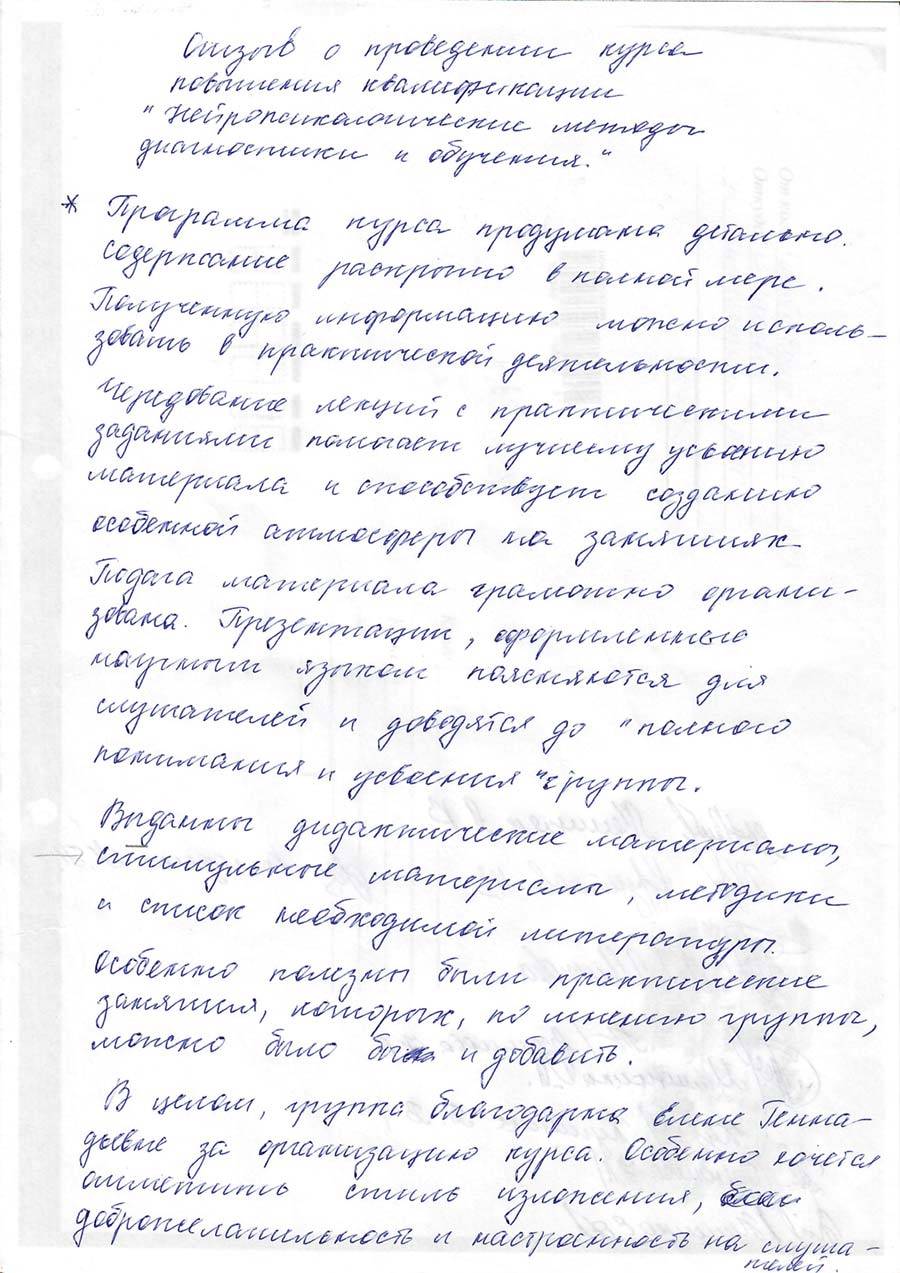 Отзыв о проведении курса
повышения квалификации
"Нейропсихологические методы
диагностики и обучения."
* Программа курса продумана детально.
содержание раскрыто в полной мере.
Полученную информацию можно исполь-
зовать в практической деятельности.
Чередование лекций с практическими
заданиями помогает лучшему усвоению
материала и способствует созданию
особенной атмосферы на занятиях
Подача материала грамотно органи-
зована. Презентации, оформленные
научным языком поясняются для
слушателей и доводятся до "полного
понимания и усвоения" группы.
Выданны дидактические материалы,
стимульные материалы, методики
и список необходимой литературы.
Особенно полезны были практические
занятия, которых, по мнению группы,
можно было бы и добавить.
В целом, группа благодарна Елене Генна-
дьевне за организацию курса. Особенно хочется
отметить стиль изложения,
доброжелательность и настроенность на слуша-
телей.